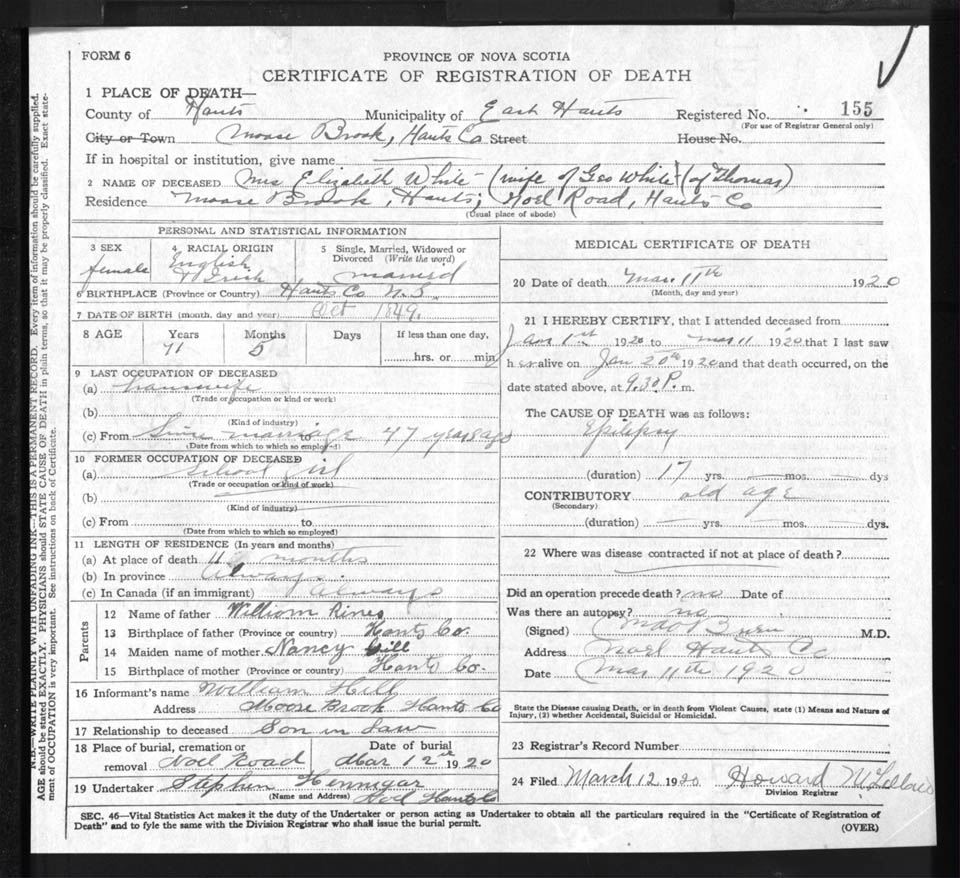 FORM 6
PROVINCE OF NOVA SCOTIA
CERTIFICATE OF REGISTRATION OF DEATH
1 PLACE OF DEATH—
County of Hants Municipality of East Hants Registered No. 155
(For use of Registrar General only)
City or Town Moose Brook, Hants Co Street House No.
If in hospital or institution, give name
2 NAME OF DECEASED Mrs Elizabeth White (wife of Geo White (of Thomas)
Residence Moose Brook, Hants, Noel Road, Hants Co
(Usual place of abode)
PERSONAL AND STATISTICAL INFORMATION
3 SEX female
4 RACIAL ORIGIN English Irish
5 Single, Married, Widowed or Divorced (Write the word) married
6 BIRTHPLACE (Province or Country) Hants Co N.S.
7 DATE OF BIRTH (month, day and year) Oct 1849
8 AGE Years 71 Months 5 Days If less than one day, hrs. or min
9 LAST OCCUPATION OF DECEASED
(a) housewife
(Trade or occupation or kind or work)
(b)
(Kind of industry)
(c) From Since marriage to 47 years ago
(Date from which to which so employed)
10 FORMER OCCUPATION OF DECEASED
(a) School girl
(Trade or occupation or kind of work)
(b)
(Kind of industry)
(c) From to
(Date from which to which so employed)
11 LENGTH OF RESIDENCE (In years and months)
(a) At place of death months
(b) In province always
(c) In Canada (if an immigrant) always
Parents
12 Name of father William Rines
13 Birthplace of father (Province or country) Hants Co.
14 Maiden name of mother Nancy
15 Birthplace of mother (Province or country) Hants Co.
16 Informant's name William Hill
Address Moose Brook Hants Co
17 Relationship to deceased Son in law
18 Place of burial, cremation or removal Noel Road Date of burial Mar 12th 1920
19 Undertaker Stephen Hennigar
(Name and Address) Noel Hants Co
MEDICAL CERTIFICATE OF DEATH
20 Date of death Mar 11th 1920
(Month, day and year)
21 I HEREBY CERTIFY, that I attended deceased from
Jan 1st 1920 to Mar 11 1920 that I last saw
her alive on Jan 20th 1920 and that death occurred, on the
date stated above, at 9.30 P. m.
The CAUSE OF DEATH was as follows:
Epilepsy
(duration) 17 yrs. mos. dys
CONTRIBUTORY old age
(Secondary)
(duration) yrs. mos. dys.
22 Where was disease contracted if not at place of death?
Did an operation precede death? no Date of
Was there an autopsy? no
(Signed) M.D.
Address Noel Hants Co
Date Mar 11th 1920
State the Disease causing Death, or in death from Violent Causes, state (1) Means and Nature of
Injury, (2) whether Accidental, Suicidal or Homicidal.
23 Registrar's Record Number
24 Filed March 12 1920 Howard
Division Registrar
SEC. 46—Vital Statistics Act makes it the duty of the Undertaker or person acting as Undertaker to obtain all the particulars required in the "Certificate of Registration of
Death" and to fyle the same with the Division Registrar who shall issue the burial permit.
(OVER)
N.B.—WRITE PLAINLY WITH UNFADING INK—THIS IS A PERMANENT RECORD. Every item of information should be carefully supplied.
AGE should be stated EXACTLY. PHYSICIANS should STATE CAUSE OF DEATH in plain terms, so that it may be properly classified. Exact statement of OCCUPATION is very important. See instructions on back of Certificate.